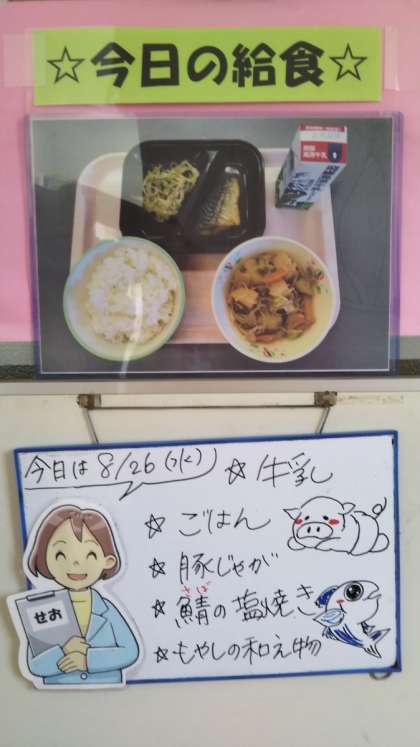 ☆今日の給食☆
今日は 8/26(水)
☆牛乳
☆ごはん
☆豚じゃが
さば
☆鯖の塩焼き
☆もやしの和え物
せお